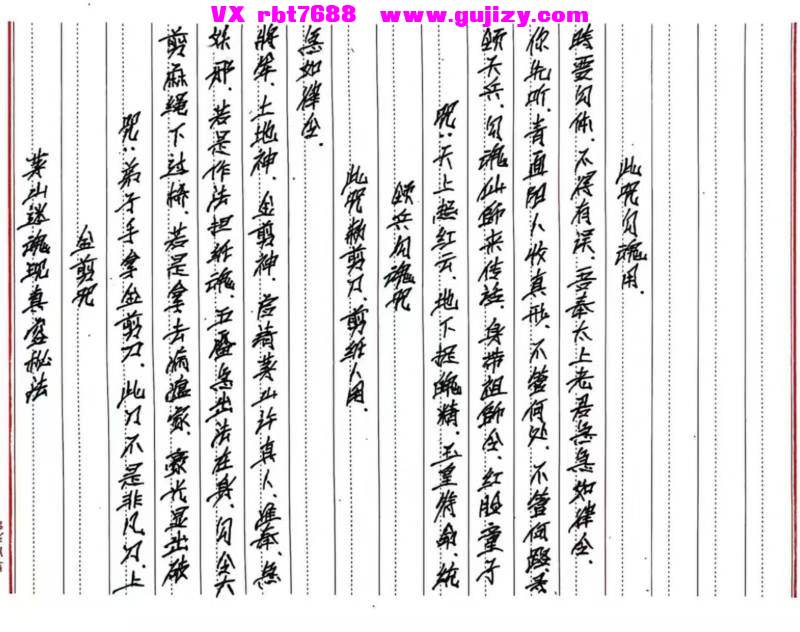 VX rbt7688 www.gujizy.com
茅山迷魂现真容秘法
金剪咒
咒:弟子手拿金剪刀、此刀不是非凡刀、上
剪麻绳下过桥、若是拿去病瘟家、豪光显出破
妖邪、若是作法担纸魂、五 急出法在身、勾 六
将 、土地神、金剪神、 请茅山许真人、准奉、急
急如律令、
此咒敕剪刀、剪纸人用、
领兵勾魂咒
咒:天上起红云、地下捉魂精、玉皇 命、统
领天兵、勾魂仙师来传 、身带祖师令、红脸童子
你先听、青面阳人收真形、不管何处、不管何
时要勾体、不得有误、吾奉太上老君急急如律令、
此咒勾魂用、